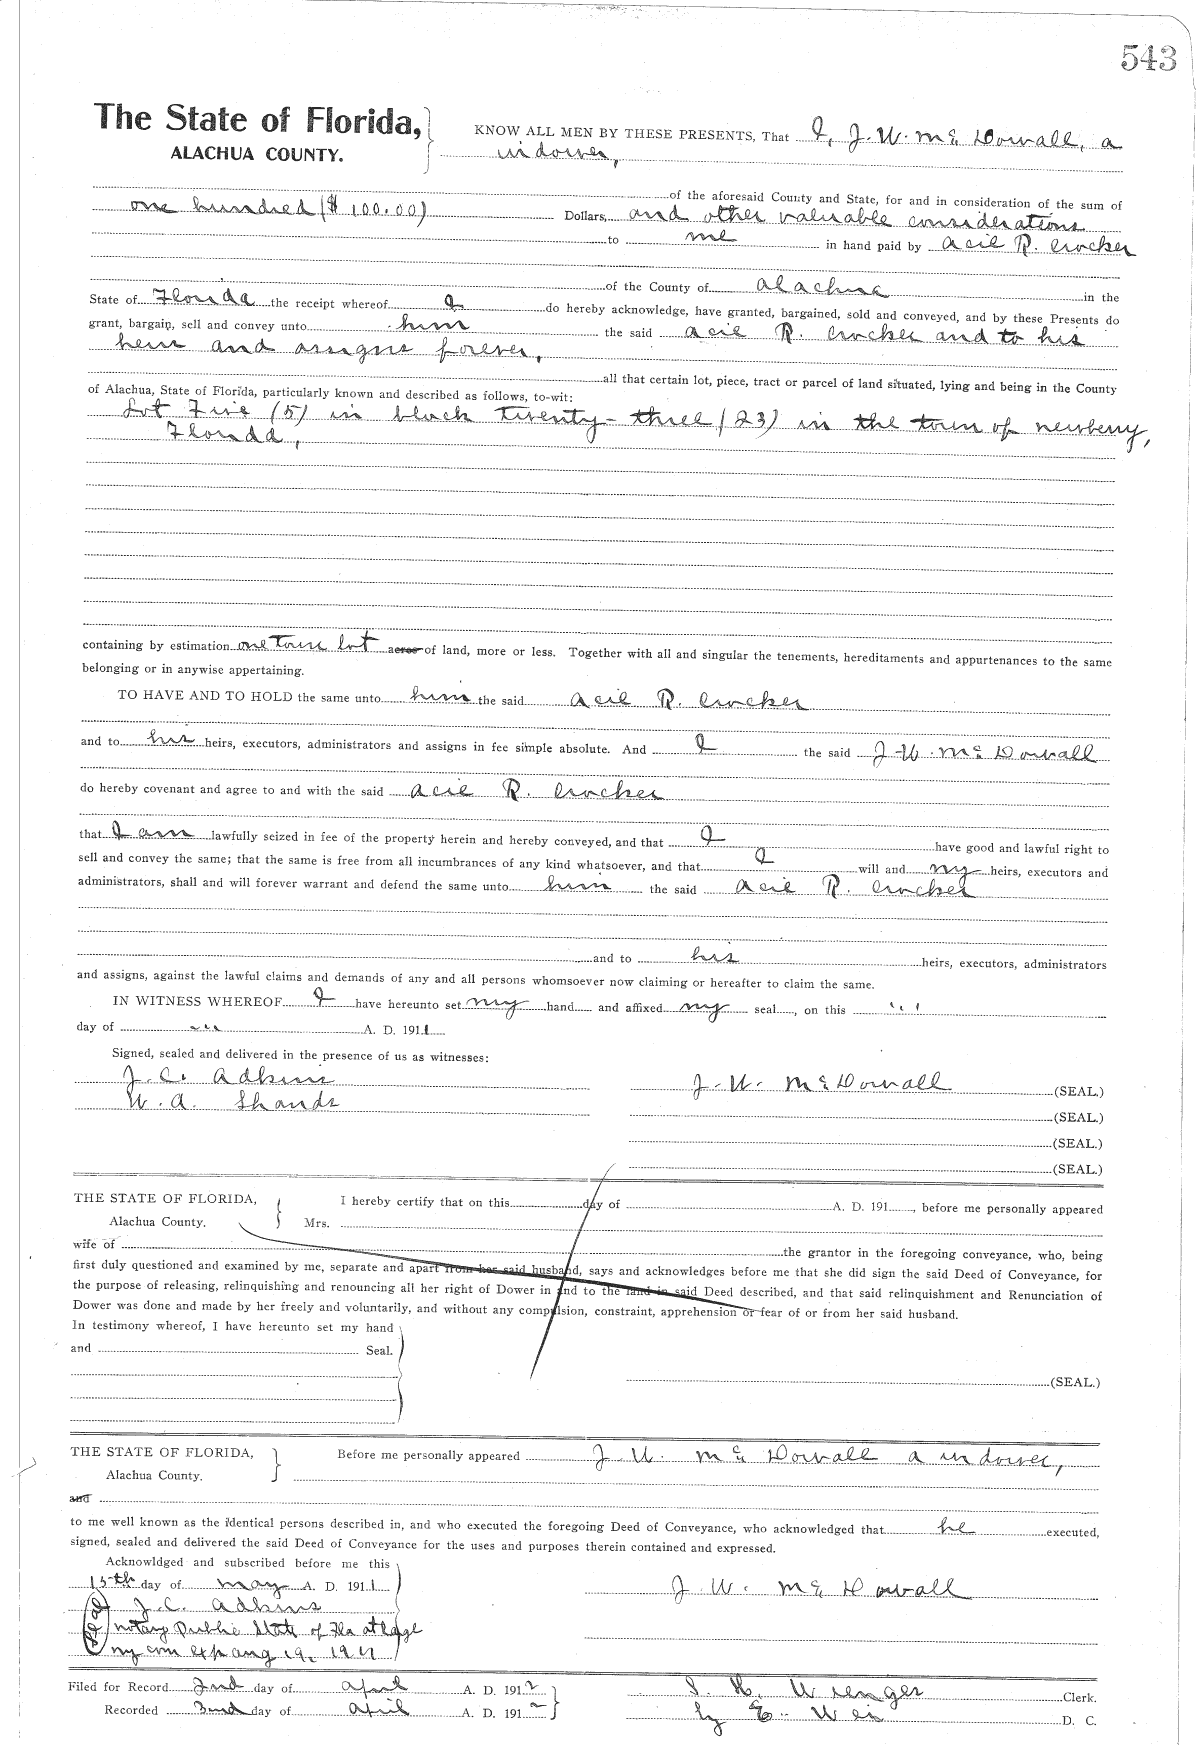 543
The State of Florida,
ALACHUA COUNTY.
KNOW ALL MEN BY THESE PRESENTS, That I, J. W. McDowall, a
widower,
of the aforesaid County and State, for and in consideration of the sum of
one hundred ($100.00) Dollars, and other valuable considerations
to me in hand paid by Acil R. Crocker
of the County of Alachua in the
State of Florida the receipt whereof I do hereby acknowledge, have granted, bargained, sold and conveyed, and by these Presents do
grant, bargain, sell and convey unto him the said Acil R. Crocker and to his
heirs and assigns forever,
all that certain lot, piece, tract or parcel of land situated, lying and being in the County
of Alachua, State of Florida, particularly known and described as follows, to-wit:
Lot Five (5) in block twenty-three (23) in the town of Newberry,
Florida,
containing by estimation one town lot acres of land, more or less. Together with all and singular the tenements, hereditaments and appurtenances to the same
belonging or in anywise appertaining.
TO HAVE AND TO HOLD the same unto him the said Acil R. Crocker
and to his heirs, executors, administrators and assigns in fee simple absolute. And I the said J. W. McDowall
do hereby covenant and agree to and with the said Acil R. Crocker
that I am lawfully seized in fee of the property herein and hereby conveyed, and that I have good and lawful right to
sell and convey the same; that the same is free from all incumbrances of any kind whatsoever, and that I will and my heirs, executors and
administrators, shall and will forever warrant and defend the same unto him the said Acil R. Crocker
and to his heirs, executors, administrators
and assigns, against the lawful claims and demands of any and all persons whomsoever now claiming or hereafter to claim the same.
IN WITNESS WHEREOF I have hereunto set my hand and affixed my seal, on this
day of A. D. 1911
Signed, sealed and delivered in the presence of us as witnesses:
J. C. Adkins
W. A. Shands
J. W. McDowall (SEAL.)
(SEAL.)
(SEAL.)
(SEAL.)
THE STATE OF FLORIDA,
Alachua County.
I hereby certify that on this day of A. D. 191 , before me personally appeared
Mrs.
wife of the grantor in the foregoing conveyance, who, being
first duly questioned and examined by me, separate and apart from her said husband, says and acknowledges before me that she did sign the said Deed of Conveyance, for
the purpose of releasing, relinquishing and renouncing all her right of Dower in and to the land in said Deed described, and that said relinquishment and Renunciation of
Dower was done and made by her freely and voluntarily, and without any compulsion, constraint, apprehension or fear of or from her said husband.
In testimony whereof, I have hereunto set my hand
and Seal.
(SEAL.)
THE STATE OF FLORIDA,
Alachua County.
Before me personally appeared J. W. McDowall a widower,
and
to me well known as the identical persons described in, and who executed the foregoing Deed of Conveyance, who acknowledged that he executed,
signed, sealed and delivered the said Deed of Conveyance for the uses and purposes therein contained and expressed.
Acknowldged and subscribed before me this
15th day of May A. D. 1911
J. W. McDowall
J. C. Adkins
Seal
Notary Public State of Fla at large
my com exp Aug 19, 1911
Filed for Record 2nd day of April A. D. 1912
Recorded 3rd day of April A. D. 1912
S. H. Wienges Clerk.
by D. C.